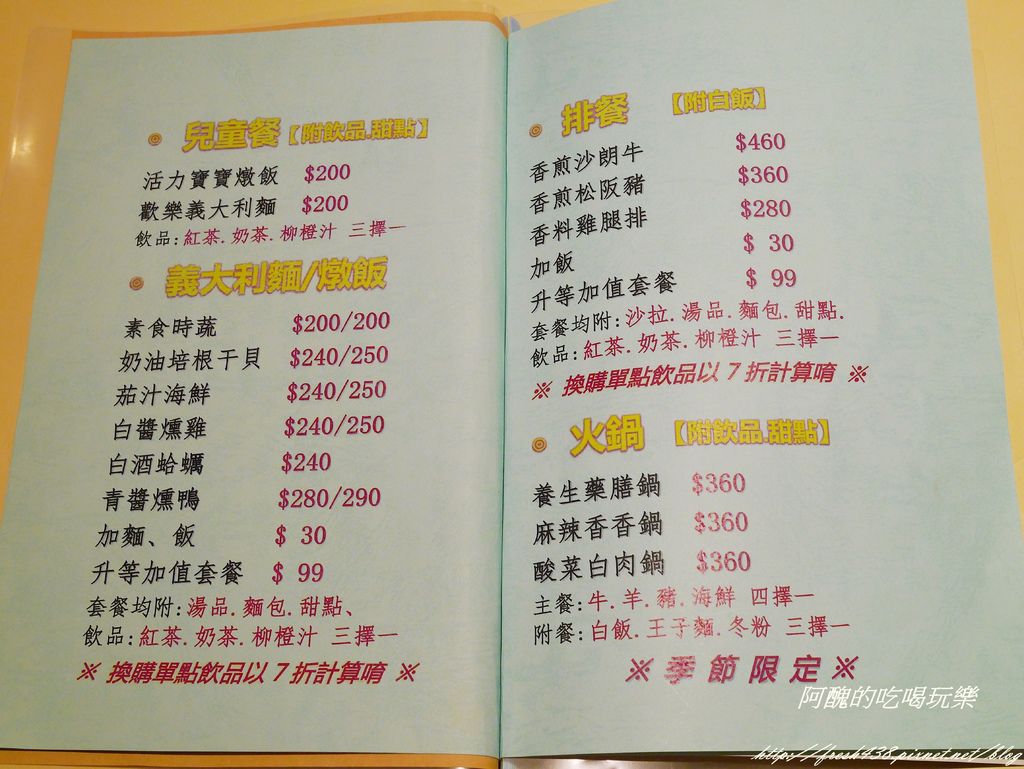 兒童餐【附飲品.甜點】
活力寶寶燉飯 $200
歡樂義大利麵 $200
飲品:紅茶.奶茶.柳橙汁 三擇一
義大利麵/燉飯
素食時蔬 $200/200
奶油培根干貝 $240/250
茄汁海鮮 $240/250
白醬燻雞 $240/250
白酒蛤蠣 $240
青醬燻鴨 $280/290
加麵、飯 $ 30
升等加值套餐 $ 99
套餐均附:湯品.麵包.甜點、
飲品:紅茶.奶茶.柳橙汁 三擇一
※ 換購單點飲品以 7 折計算唷 ※
排餐 【附白飯】
香煎沙朗牛 $460
香煎松阪豬 $360
香料雞腿排 $280
加飯 $ 30
升等加值套餐 $ 99
套餐均附:沙拉.湯品.麵包.甜點.
飲品:紅茶.奶茶.柳橙汁 三擇一
※ 換購單點飲品以 7 折計算唷 ※
火鍋 【附飲品.甜點】
養生藥膳鍋 $360
麻辣香香鍋 $360
酸菜白肉鍋 $360
主餐:牛.羊.豬.海鮮 四擇一
附餐:白飯.王子麵.冬粉 三擇一
※ 季 節 限 定 ※
阿醜的吃喝玩樂
http://fresh438.pixnet.net/blog